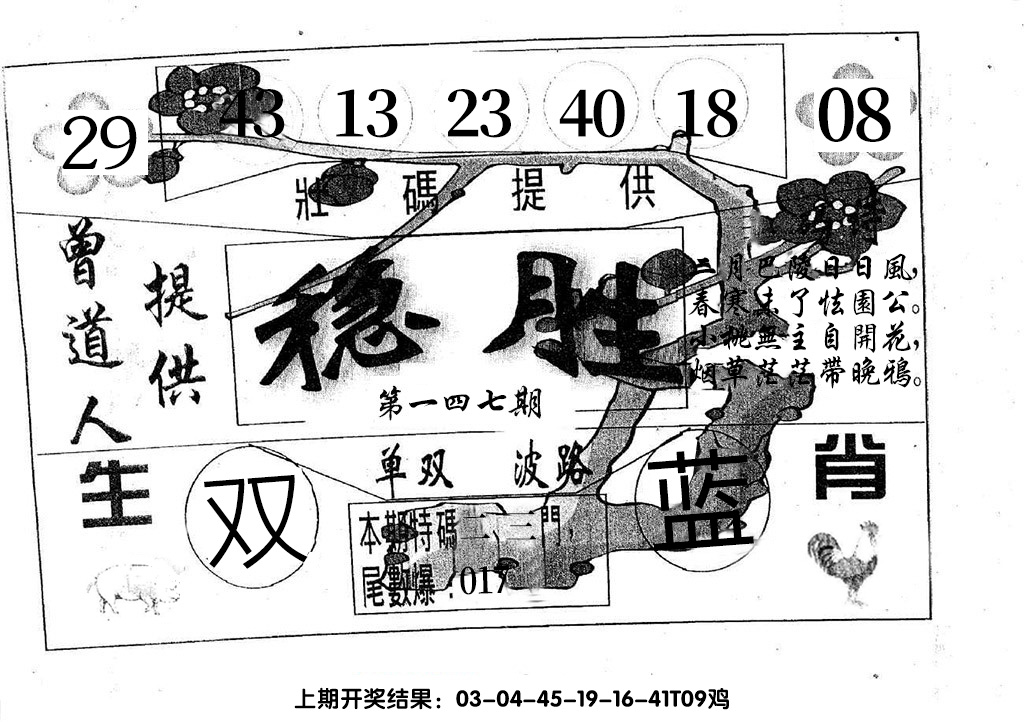 29 43 13 23 40 18 08
壯碼提供
特
曾道人
提供
稳胜
第一四七期
二月巴陵日日風，
春寒未了怯園公。
小桃無主自開花，
烟草茫茫帶晚鴉。
单双 波路
生
肖
双
蓝
本期特碼二、三門，
尾數爆：017
上期开奖结果：03-04-45-19-16-41T09鸡